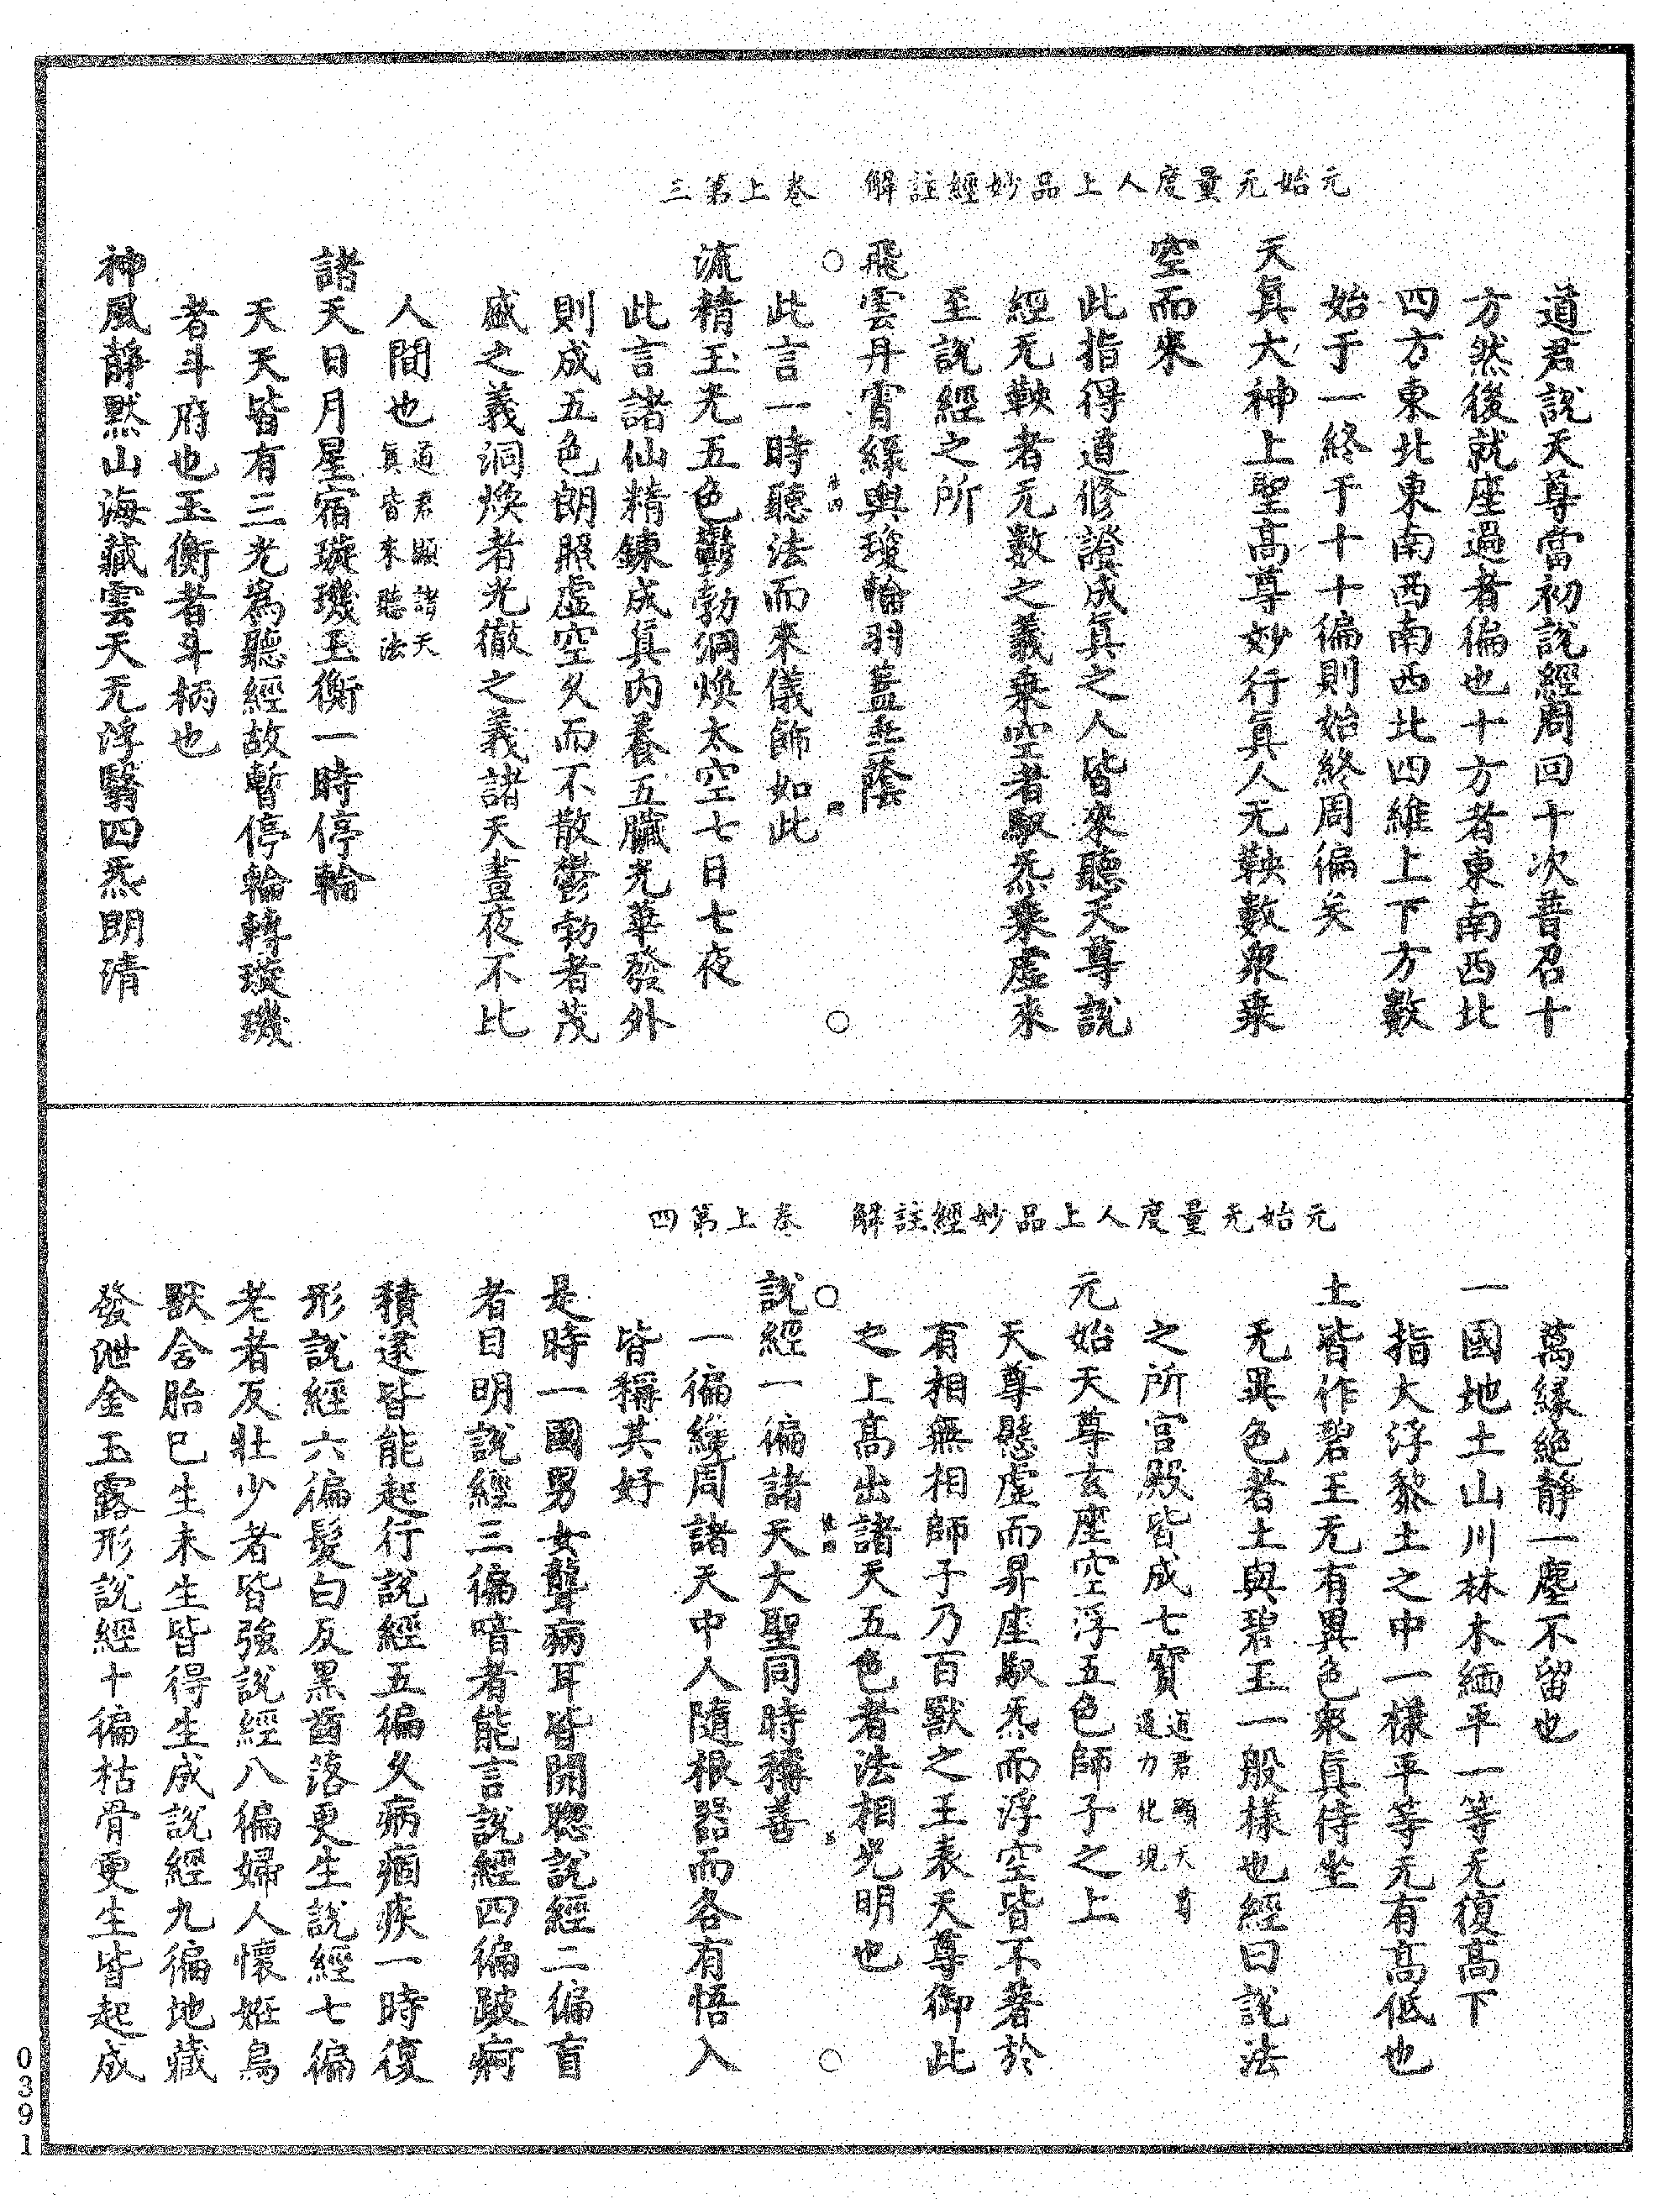 元始无量度人上品妙經註解　卷上第三
道君說天尊當初說經周回十次普召十
方然後就座過者徧也十方者東南西北
四方東北東南西南西北四維上下方數
始于一終于十十徧則始終周徧矣
天真大神上聖高尊妙行真人无鞅數衆乗
空而來
此指得道修證成真之人皆來聽天尊說
經无鞅者无數之義乗空者馭炁乗虛來
至說經之所
飛雲丹霄緑輿瓊輪羽蓋垂蔭
此言一時聽法而來儀飾如此
流精玉光五色鬱勃洞煥太空七日七夜
此言諸仙精鍊成真内養五臟光華發外
則成五色朗照虛空久而不散鬱勃者茂
盛之義洞煥者光徹之義諸天晝夜不比
人間也道君顯諸天真皆來聽法
諸天日月星宿璇璣玉衡一時停輪
天天皆有三光爲聽經故暫停輪轉璇璣
者斗府也玉衡者斗柄也
神風靜默山海藏雲天无浮翳四炁明清
元始无量度人上品妙經註解　卷上第四
萬緣絶靜一塵不留也
一國地土山川林木緬平一等无復高下
指大浮黎土之中一樣平等无有高低也
土皆作碧玉无有異色衆真侍坐
无異色者土與碧玉一般樣也經曰說法
之所宫殿皆成七寶道君顯天尊道力化現
元始天尊玄座空浮五色師子之上
天尊懸虛而昇座馭炁而浮空皆不著於
有相無相師子乃百獸之王表天尊御此
之上高出諸天五色者法相光明也
說經一徧諸天大聖同時稱善
一徧繞周諸天中人隨根器而各有悟入
皆稱其好
是時一國男女聾病耳皆開聰說經二徧盲
者目明說經三徧喑者能言說經四徧跛痾
積逮皆能起行說經五徧久病痼疾一時復
形說經六徧髮白反黑齒落更生說經七徧
老者反壯少者皆強說經八徧婦人懷妊鳥
獸含胎已生未生皆得生成說經九徧地藏
發泄金玉露形說經十徧枯骨更生皆起成
0391